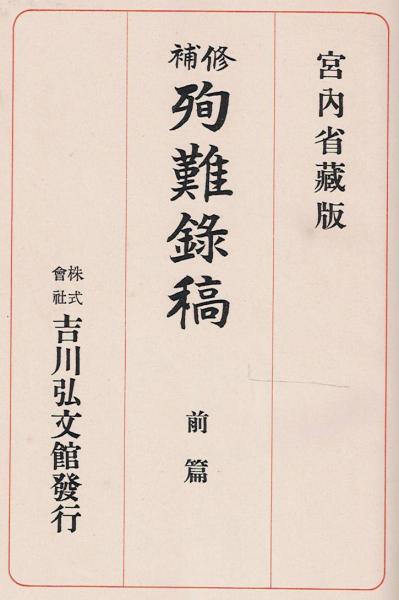 宮內省藏版
修補
殉難錄稿
前篇
株式會社
吉川弘文館發行